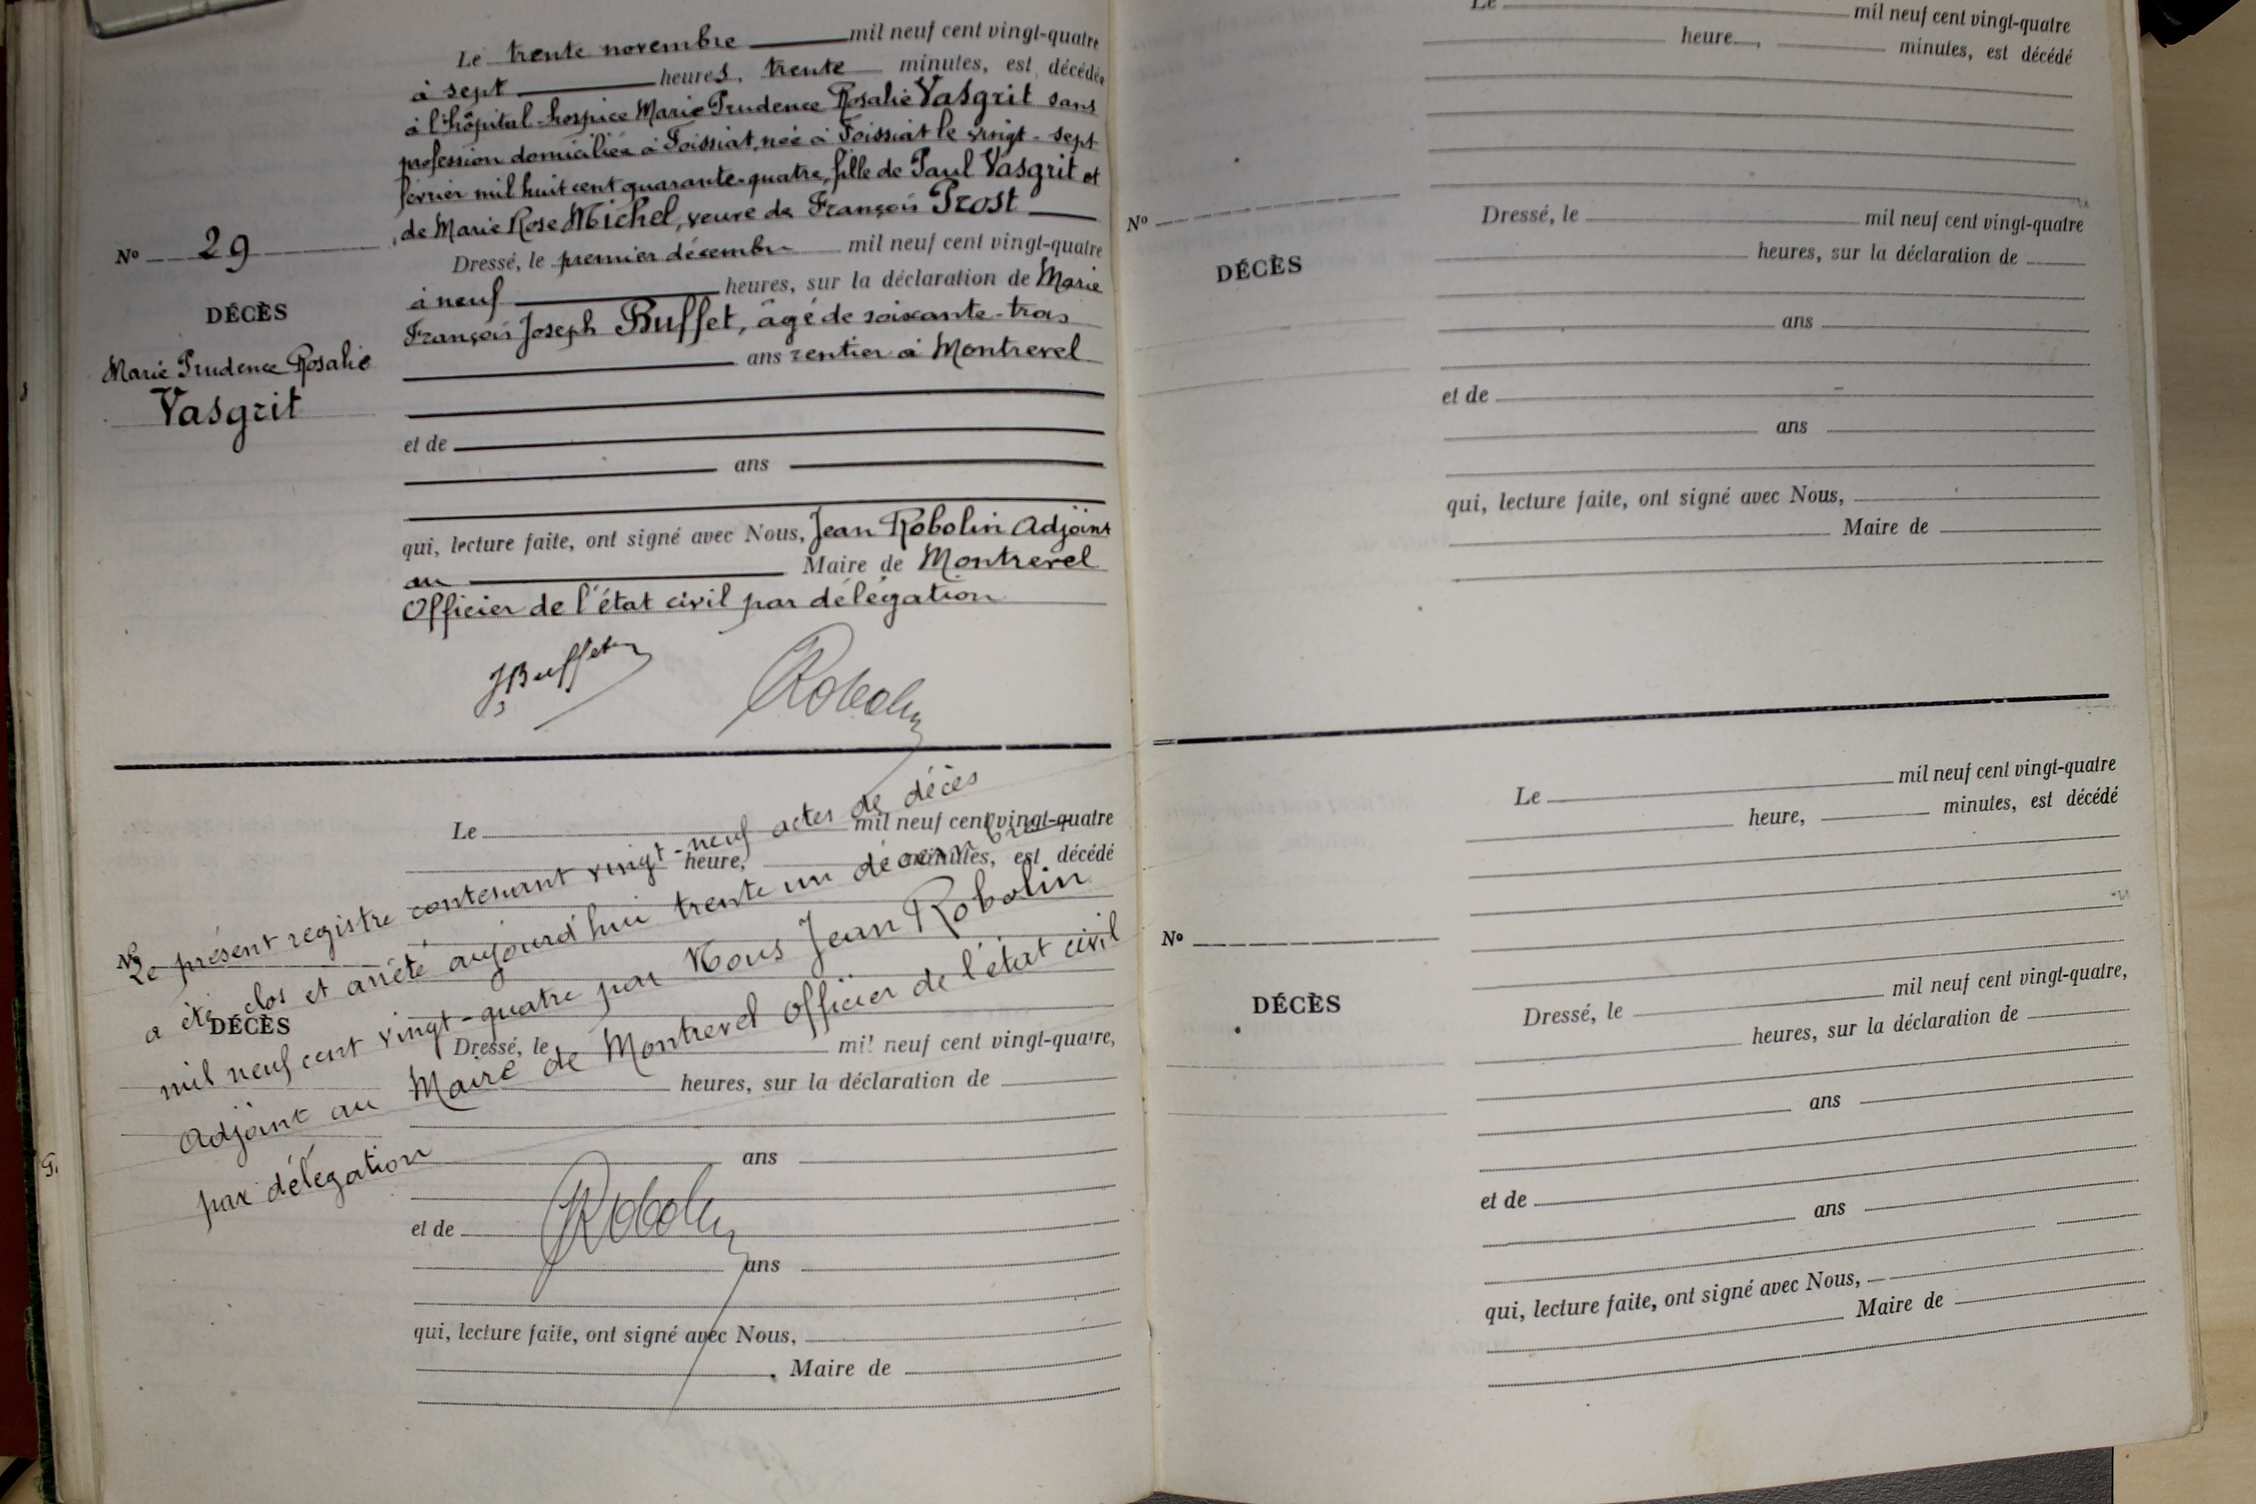 Le trente novembre mil neuf cent vingt-quatre
à sept heures, trente minutes, est décédée
à l'hôpital-hospice Marie Prudence Rosalie Vasgrit sans
profession domiciliée à Foissiat, née à Foissiat le vingt-sept
février mil huit cent quarante-quatre, fille de Paul Vasgrit et
de Marie Rose Michel, veuve de François Prost
No 29
DÉCÈS
Marie Prudence Rosalie
Vasgrit
Dressé, le premier décembre mil neuf cent vingt-quatre
à neuf heures, sur la déclaration de Marie
François Joseph Buffet, âgé de soixante-trois
ans rentier à Montrevel
et de
ans
qui, lecture faite, ont signé avec Nous, Jean Robolin Adjoint
au Maire de Montrevel
Officier de l'état civil par délégation
JBuffet
Robolin
Le mil neuf cent vingt-quatre
heure, minutes, est décédé
No
DÉCÈS
Dressé, le mil neuf cent vingt-quatre,
heures, sur la déclaration de
ans
et de
ans
qui, lecture faite, ont signé avec Nous,
Maire de
Le présent registre contenant vingt-neuf actes de décès
a été clos et arrêté aujourd'hui trente un décembre
mil neuf cent vingt-quatre par Nous Jean Robolin
Adjoint au Maire de Montrevel Officier de l'état civil
par délégation
Robolin
Le mil neuf cent vingt-quatre
heure, minutes, est décédé
No
DÉCÈS
Dressé, le mil neuf cent vingt-quatre
heures, sur la déclaration de
ans
et de
ans
qui, lecture faite, ont signé avec Nous,
Maire de
Le mil neuf cent vingt-quatre
heure, minutes, est décédé
No
DÉCÈS
Dressé, le mil neuf cent vingt-quatre,
heures, sur la déclaration de
ans
et de
ans
qui, lecture faite, ont signé avec Nous,
Maire de